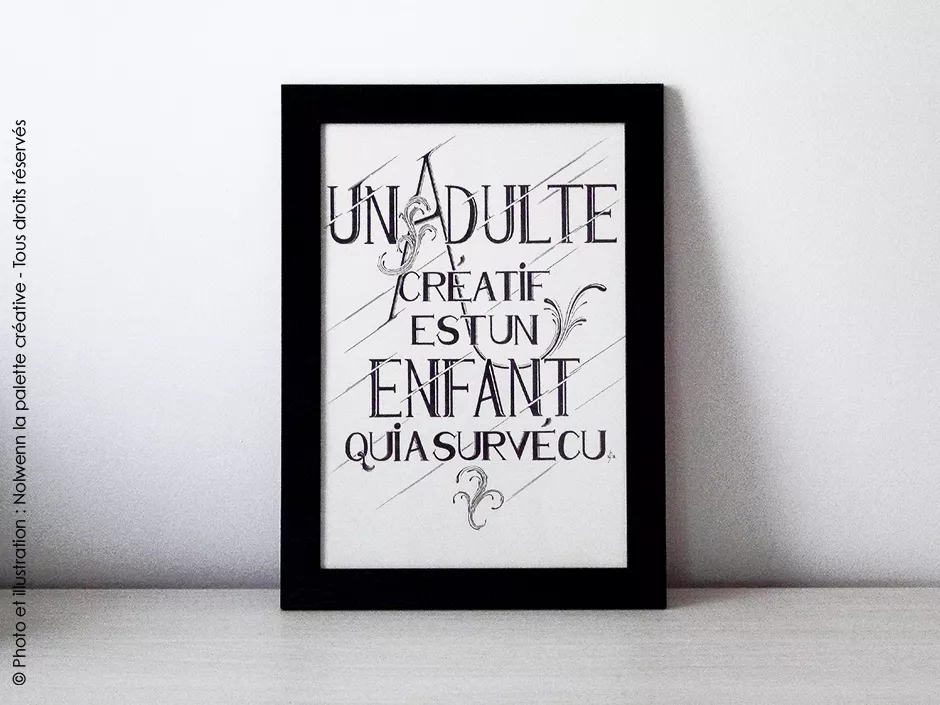 UN ADULTE
CRÉATIF
EST UN
ENFANT
QUI A SURVÉCU.
© Photo et illustration : Nolwenn la palette créative - Tous droits réservés